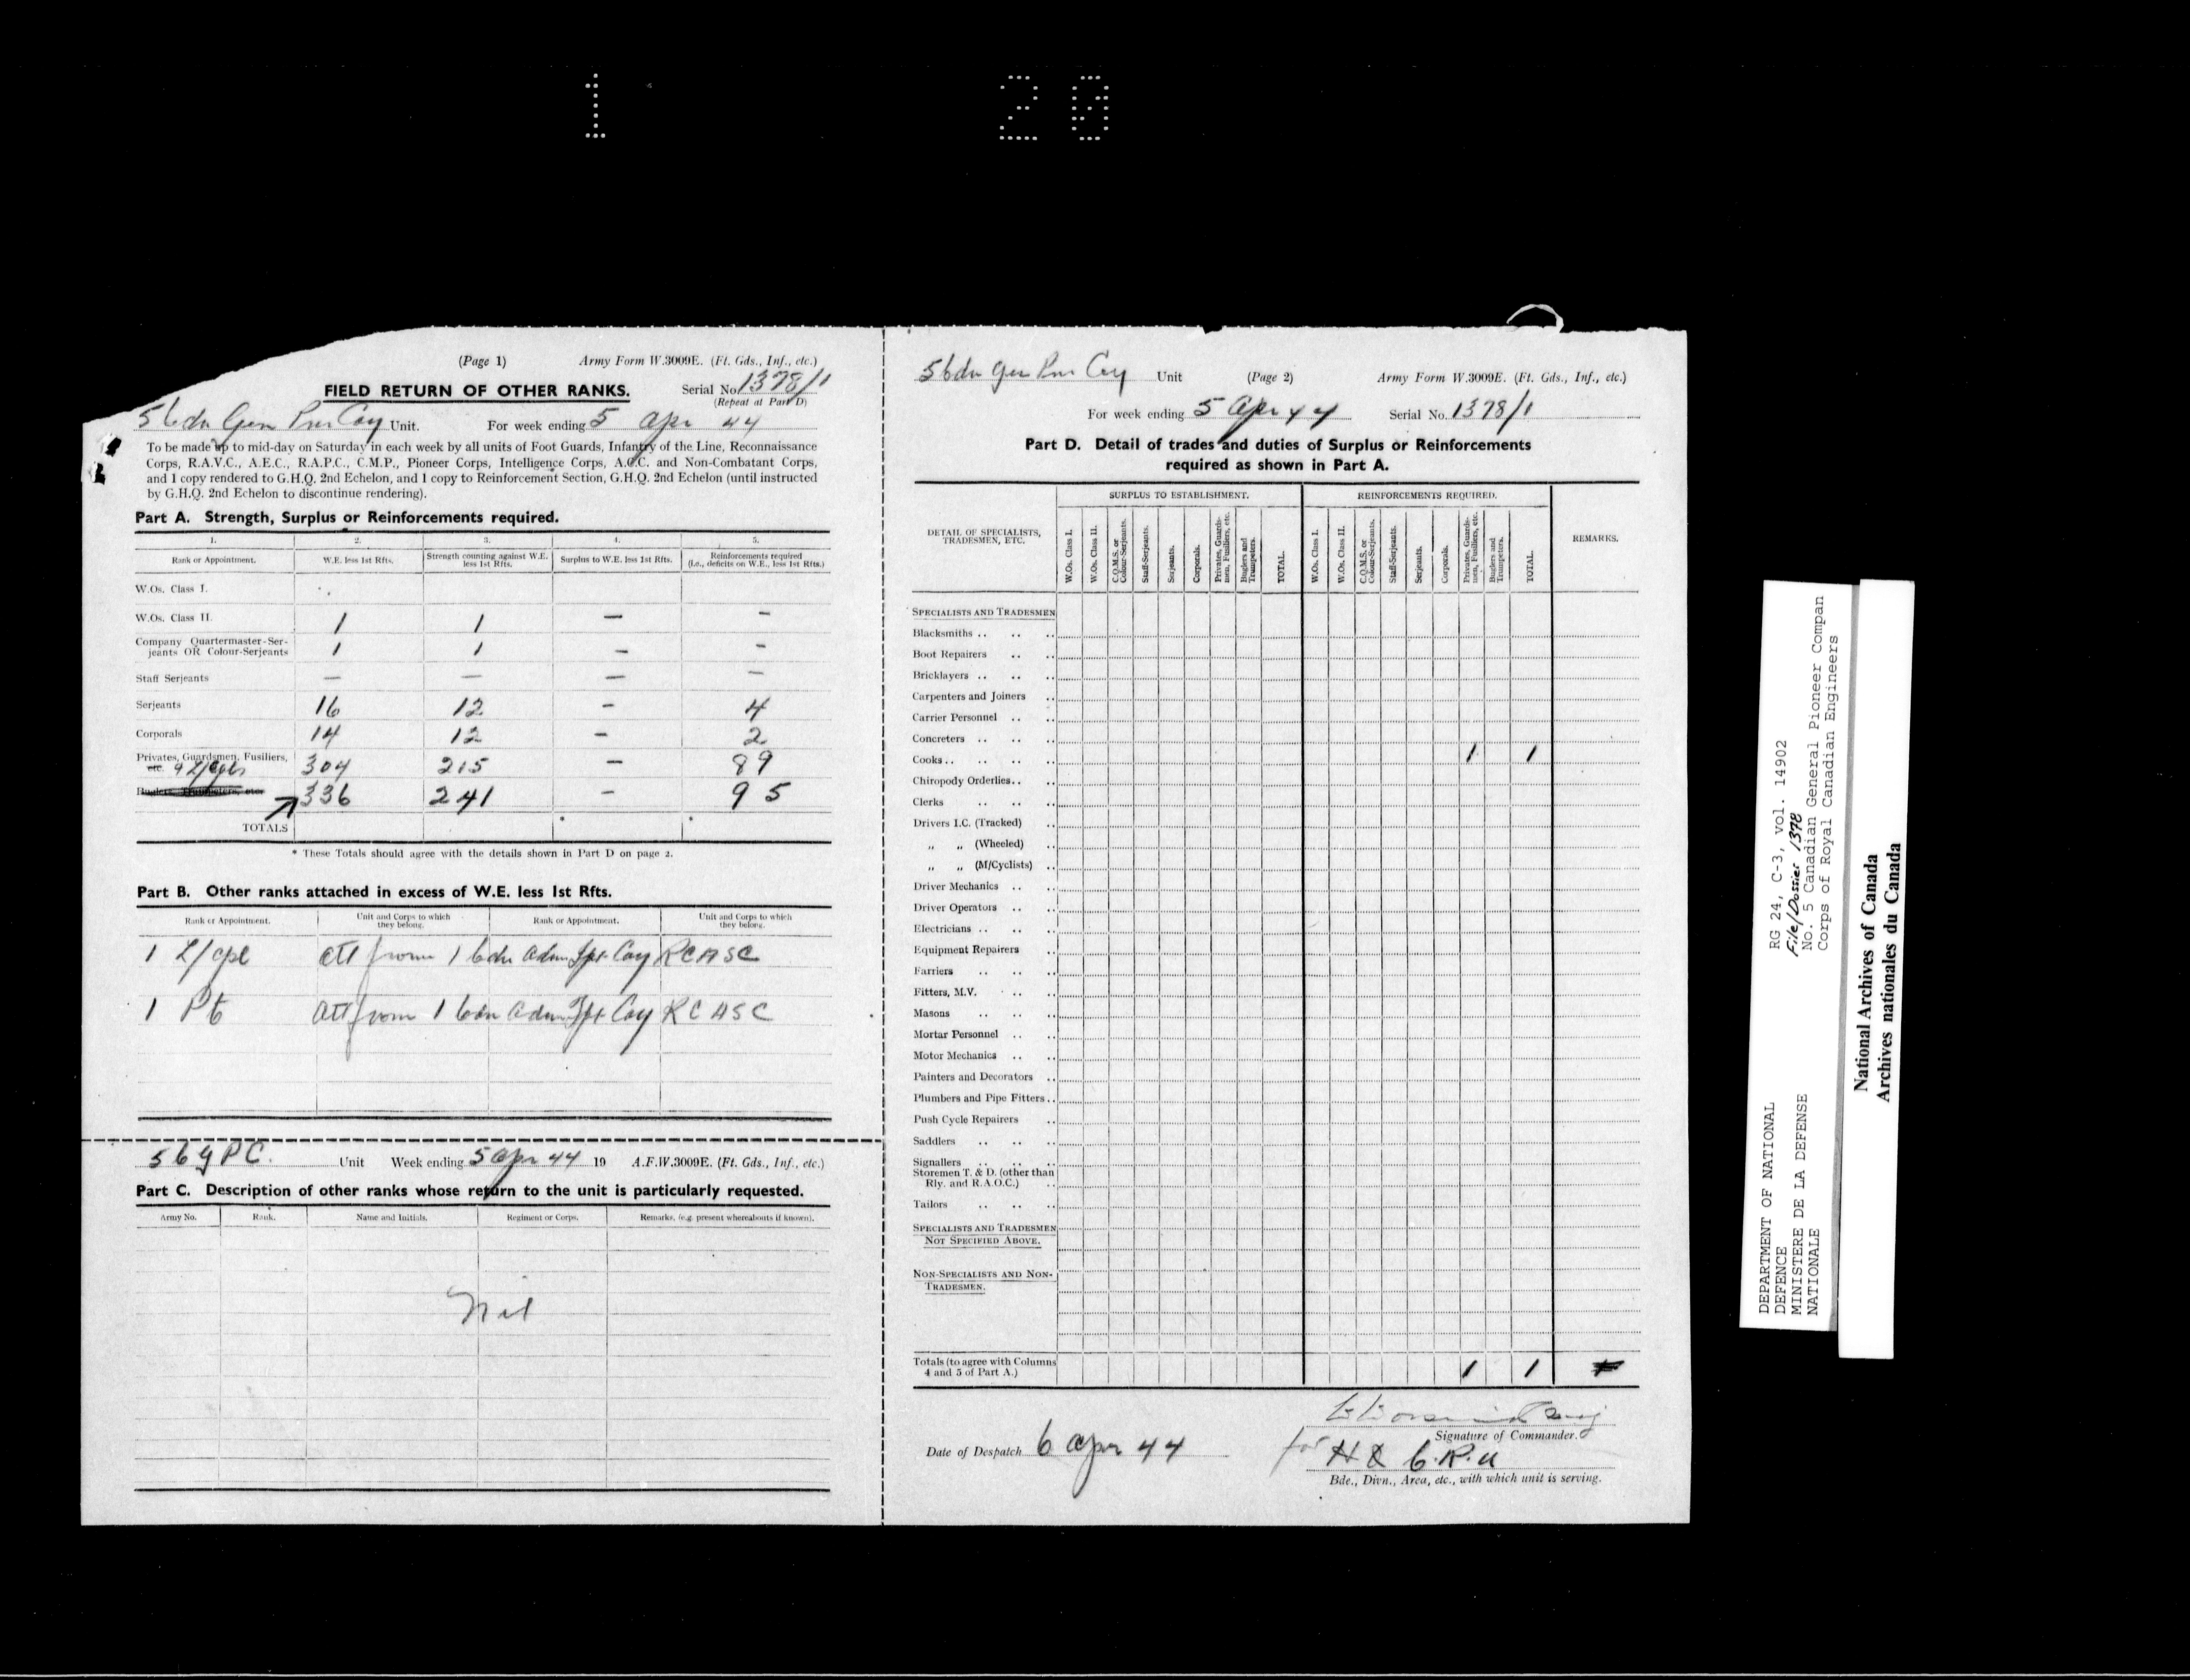 1 20
(Page 1) Army Form W.3009E. (Ft. Gds., Inf., etc.)
FIELD RETURN OF OTHER RANKS. Serial No. 1378/1
(Repeat at Part D)
5 Cdn Gen Pnr Coy Unit. For week ending 5 Apr 44
To be made up to mid-day on Saturday in each week by all units of Foot Guards, Infantry of the Line, Reconnaissance
Corps, R.A.V.C., A.E.C., R.A.P.C., C.M.P., Pioneer Corps, Intelligence Corps, A.C.C. and Non-Combatant Corps,
and 1 copy rendered to G.H.Q. 2nd Echelon, and 1 copy to Reinforcement Section, G.H.Q. 2nd Echelon (until instructed
by G.H.Q. 2nd Echelon to discontinue rendering).
Part A. Strength, Surplus or Reinforcements required.
1. 2. 3. 4. 5.
Rank or Appointment. W.E. less 1st Rfts. Strength counting against W.E. less 1st Rfts. Surplus to W.E. less 1st Rfts. Reinforcements required (i.e., deficits on W.E., less 1st Rfts.)
W.Os. Class I.
W.Os. Class II. 1 1 — —
Company Quartermaster-Ser-
jeants OR Colour-Serjeants 1 1 — —
Staff Serjeants — — — —
Serjeants 16 12 — 4
Corporals 14 12 — 2
Privates, Guardsmen, Fusiliers,
etc. 9 L/Cpls 304 215 — 89
336 241 — 95
TOTALS
* These Totals should agree with the details shown in Part D on page 2.
Part B. Other ranks attached in excess of W.E. less 1st Rfts.
Rank or Appointment. Unit and Corps to which they belong. Rank or Appointment. Unit and Corps to which they belong.
1 L/Cpl att from 1 Cdn Adm Tpt Coy RCASC
1 Pte att from 1 Cdn Adm Tpt Coy RCASC
5 C G P C. Unit Week ending 5 Apr 44 19 A.F.W.3009E. (Ft. Gds., Inf., etc.)
Part C. Description of other ranks whose return to the unit is particularly requested.
Army No. Rank. Name and Initials. Regiment or Corps. Remarks, (e.g. present whereabouts if known).
Nil
5 Cdn Gen Pnr Coy Unit (Page 2) Army Form W.3009E. (Ft. Gds., Inf., etc.)
For week ending 5 Apr 44 Serial No. 1378/1
Part D. Detail of trades and duties of Surplus or Reinforcements
required as shown in Part A.
SURPLUS TO ESTABLISHMENT. REINFORCEMENTS REQUIRED.
DETAIL OF SPECIALISTS, TRADESMEN, ETC. W.Os. Class I. W.Os. Class II. C.Q.M.S. or Colour-Serjeants. Staff-Serjeants. Serjeants. Corporals. Privates, Guardsmen, Fusiliers, etc. Buglers and Trumpeters. TOTAL. W.Os. Class I. W.Os. Class II. C.Q.M.S. or Colour-Serjeants. Staff-Serjeants. Serjeants. Corporals. Privates, Guardsmen, Fusiliers, etc. Buglers and Trumpeters. TOTAL. REMARKS.
SPECIALISTS AND TRADESMEN
Blacksmiths
Boot Repairers
Bricklayers
Carpenters and Joiners
Carrier Personnel
Concreters
Cooks 1 1
Chiropody Orderlies
Clerks
Drivers I.C. (Tracked)
„ „ (Wheeled)
„ „ (M/Cyclists)
Driver Mechanics
Driver Operators
Electricians
Equipment Repairers
Farriers
Fitters, M.V.
Masons
Mortar Personnel
Motor Mechanics
Painters and Decorators
Plumbers and Pipe Fitters
Push Cycle Repairers
Saddlers
Signallers
Storemen T. & D. (other than
Rly. and R.A.O.C.)
Tailors
SPECIALISTS AND TRADESMEN
NOT SPECIFIED ABOVE.
NON-SPECIALISTS AND NON-
TRADESMEN.
Totals (to agree with Columns
4 and 5 of Part A.) 1 1
Signature of Commander.
Date of Despatch 6 Apr 44
for H Q C.R.U
Bde., Divn., Area, etc., with which unit is serving.
DEPARTMENT OF NATIONAL
DEFENCE
MINISTERE DE LA DEFENSE
NATIONALE
RG 24, C-3, Vol. 14902
File/Dossier 1378
No. 5 Canadian General Pioneer Compan
Corps of Royal Canadian Engineers
National Archives of Canada
Archives nationales du Canada